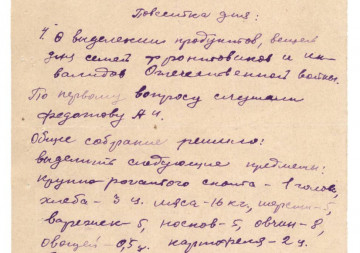 Повестка дня:
1. О выделении продуктов, вещей
для семей фронтовиков и ин-
валидов Отечественной войны.
По первому вопросу слушали
Федотову А.И.
Общее собрание решило:
выделить следующие предметы:
крупно рогатого скота - 1 голова,
хлеба - 3 ц. мяса - 16 кг, шерсти - 5,
варежек - 5, носков - 5, овчин - 8,
овощей - 0,5 ц. картофеля - 2 ц.